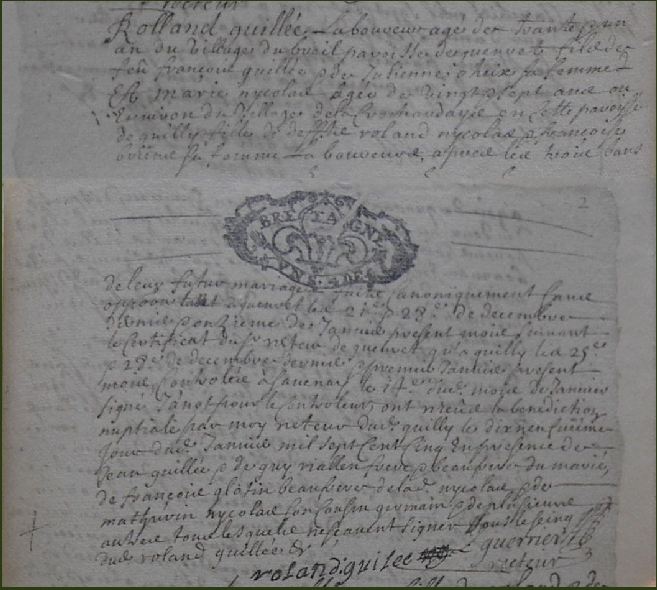 Recteur
Rolland guillée Laboureur agé de trante & un
an du village du breil paroisse de guenvet fils de
feu françois guillée & de Jullienne pheix sa femme
Et marie nycolas agée de vingt & sept ans ou
Environ du village de la en cette paroisse
de quilly fille de deffte roland nycolas & françoise
sa femme Laboureurs, apres les trois bans
2
BRETAGNE
VN S. 4 DE
de leur futur mariage faits Canoniquement sans
opposition tant a guenvet les 21e & 28e de decembre
dernier & onzieme de Janvier present mois suivant
le certificat du sr recteur de guenvet qu'a quilly les 25e
& 28e de decembre dernier & premier Janvier present
mois, Controlée à Sauenay le 14eme dud. mois de Janvier
signe Janot pour le controleur, ont receu la benediction
nuptiale par moy recteur dud. quilly le dixneufuieme
Jour dud. Janvier mil sept Cent Cinq En presence de
Jean guillée & de guy riallen frere & beaufrere du marié,
de françois glatin beaufrere de lad. nycolas & de
mathurin nycolas son Cousin germain & de plusieurs
autres tous lesquels ne sçauent signer fors le seing
dud. roland guillée &
roland guilee
L guerrier
recteur